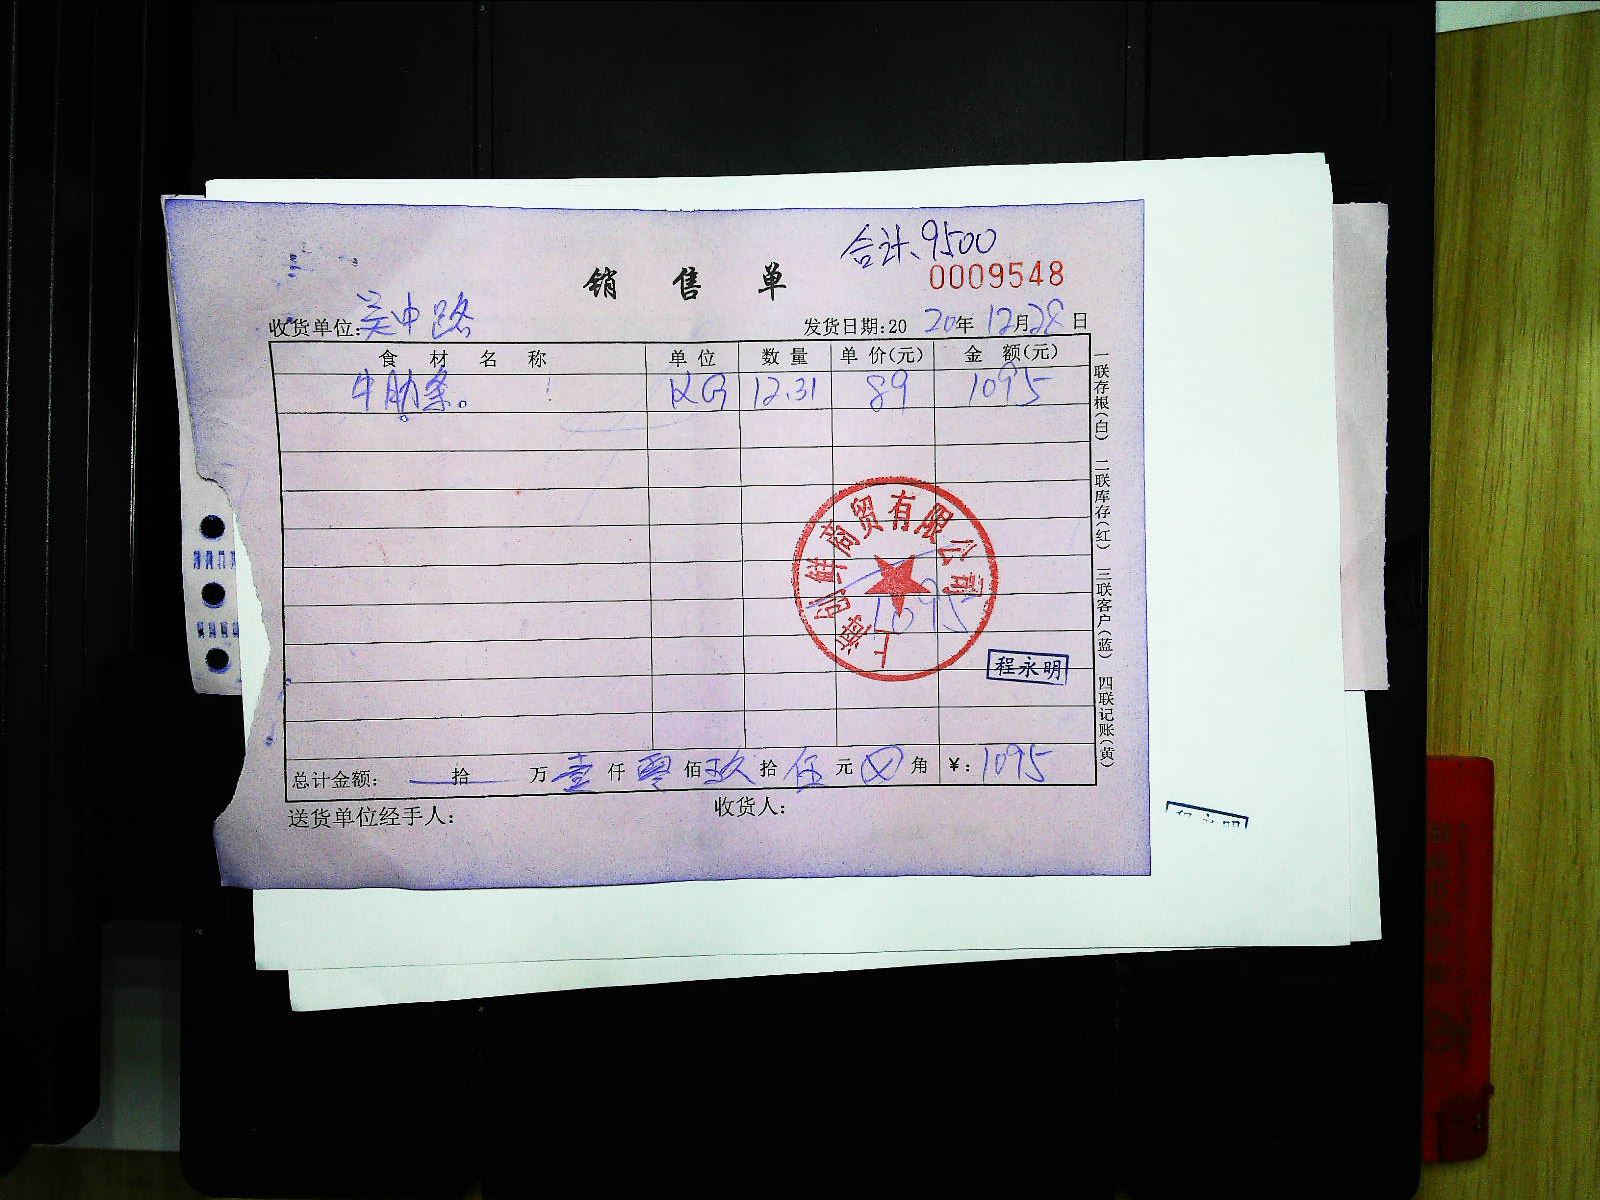 合计、9500
销售单
0009548
收货单位:吴中路
发货日期:20 20年12月28日
食材名称 单位 数量 单价(元) 金额(元)
牛肋条。 KG 12.31 89 1095
1095
上海创鲜商贸有限公司
程永明
总计金额: 拾 万壹仟零佰玖拾伍元⊗角 ¥:1095
送货单位经手人:
收货人:
一联存根(白) 二联库存(红) 三联客户(蓝) 四联记账(黄)
程永明